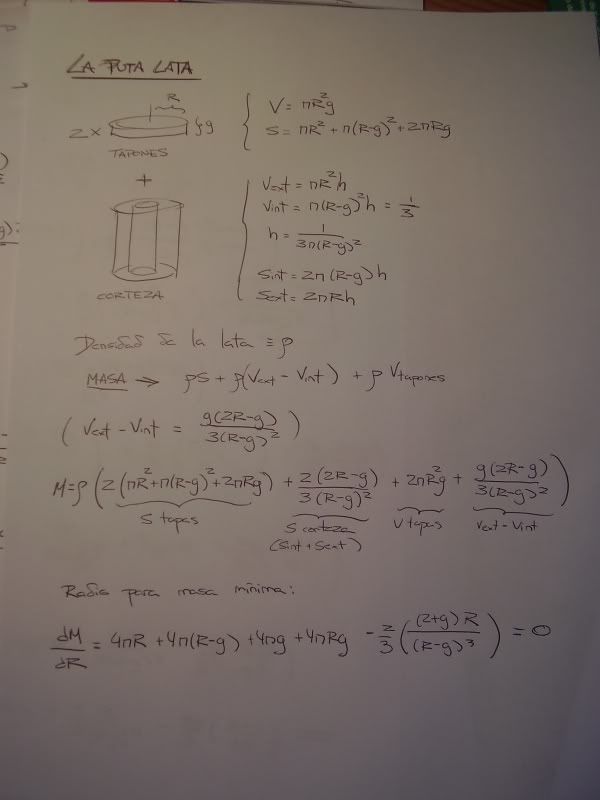 LA PUTA LATA
R
2 x
g
TAPONES
V = πR²g
S = πR² + π(R-g)² + 2πRg
+
Vext = πR²h
Vint = π(R-g)²h = 1/3
h = 1/3π(R-g)²
Sint = 2π(R-g)h
Sext = 2πRh
CORTEZA
Densidad de la lata ≡ ρ
MASA → ρS + ρ(Vext - Vint) + ρ Vtapones
(Vext - Vint = g(2R-g)/3(R-g)²)
M = ρ(2(πR² + π(R-g)² + 2πRg) + 2(2R-g)/3(R-g)² + 2πR²g + g(2R-g)/3(R-g)²)
S tapas S corteza V tapas Vext - Vint
(Sint + Sext)
Radio para masa mínima:
dM/dR = 4πR + 4π(R-g) + 4πg + 4πRg - 2/3((2+g)R/(R-g)³) = 0